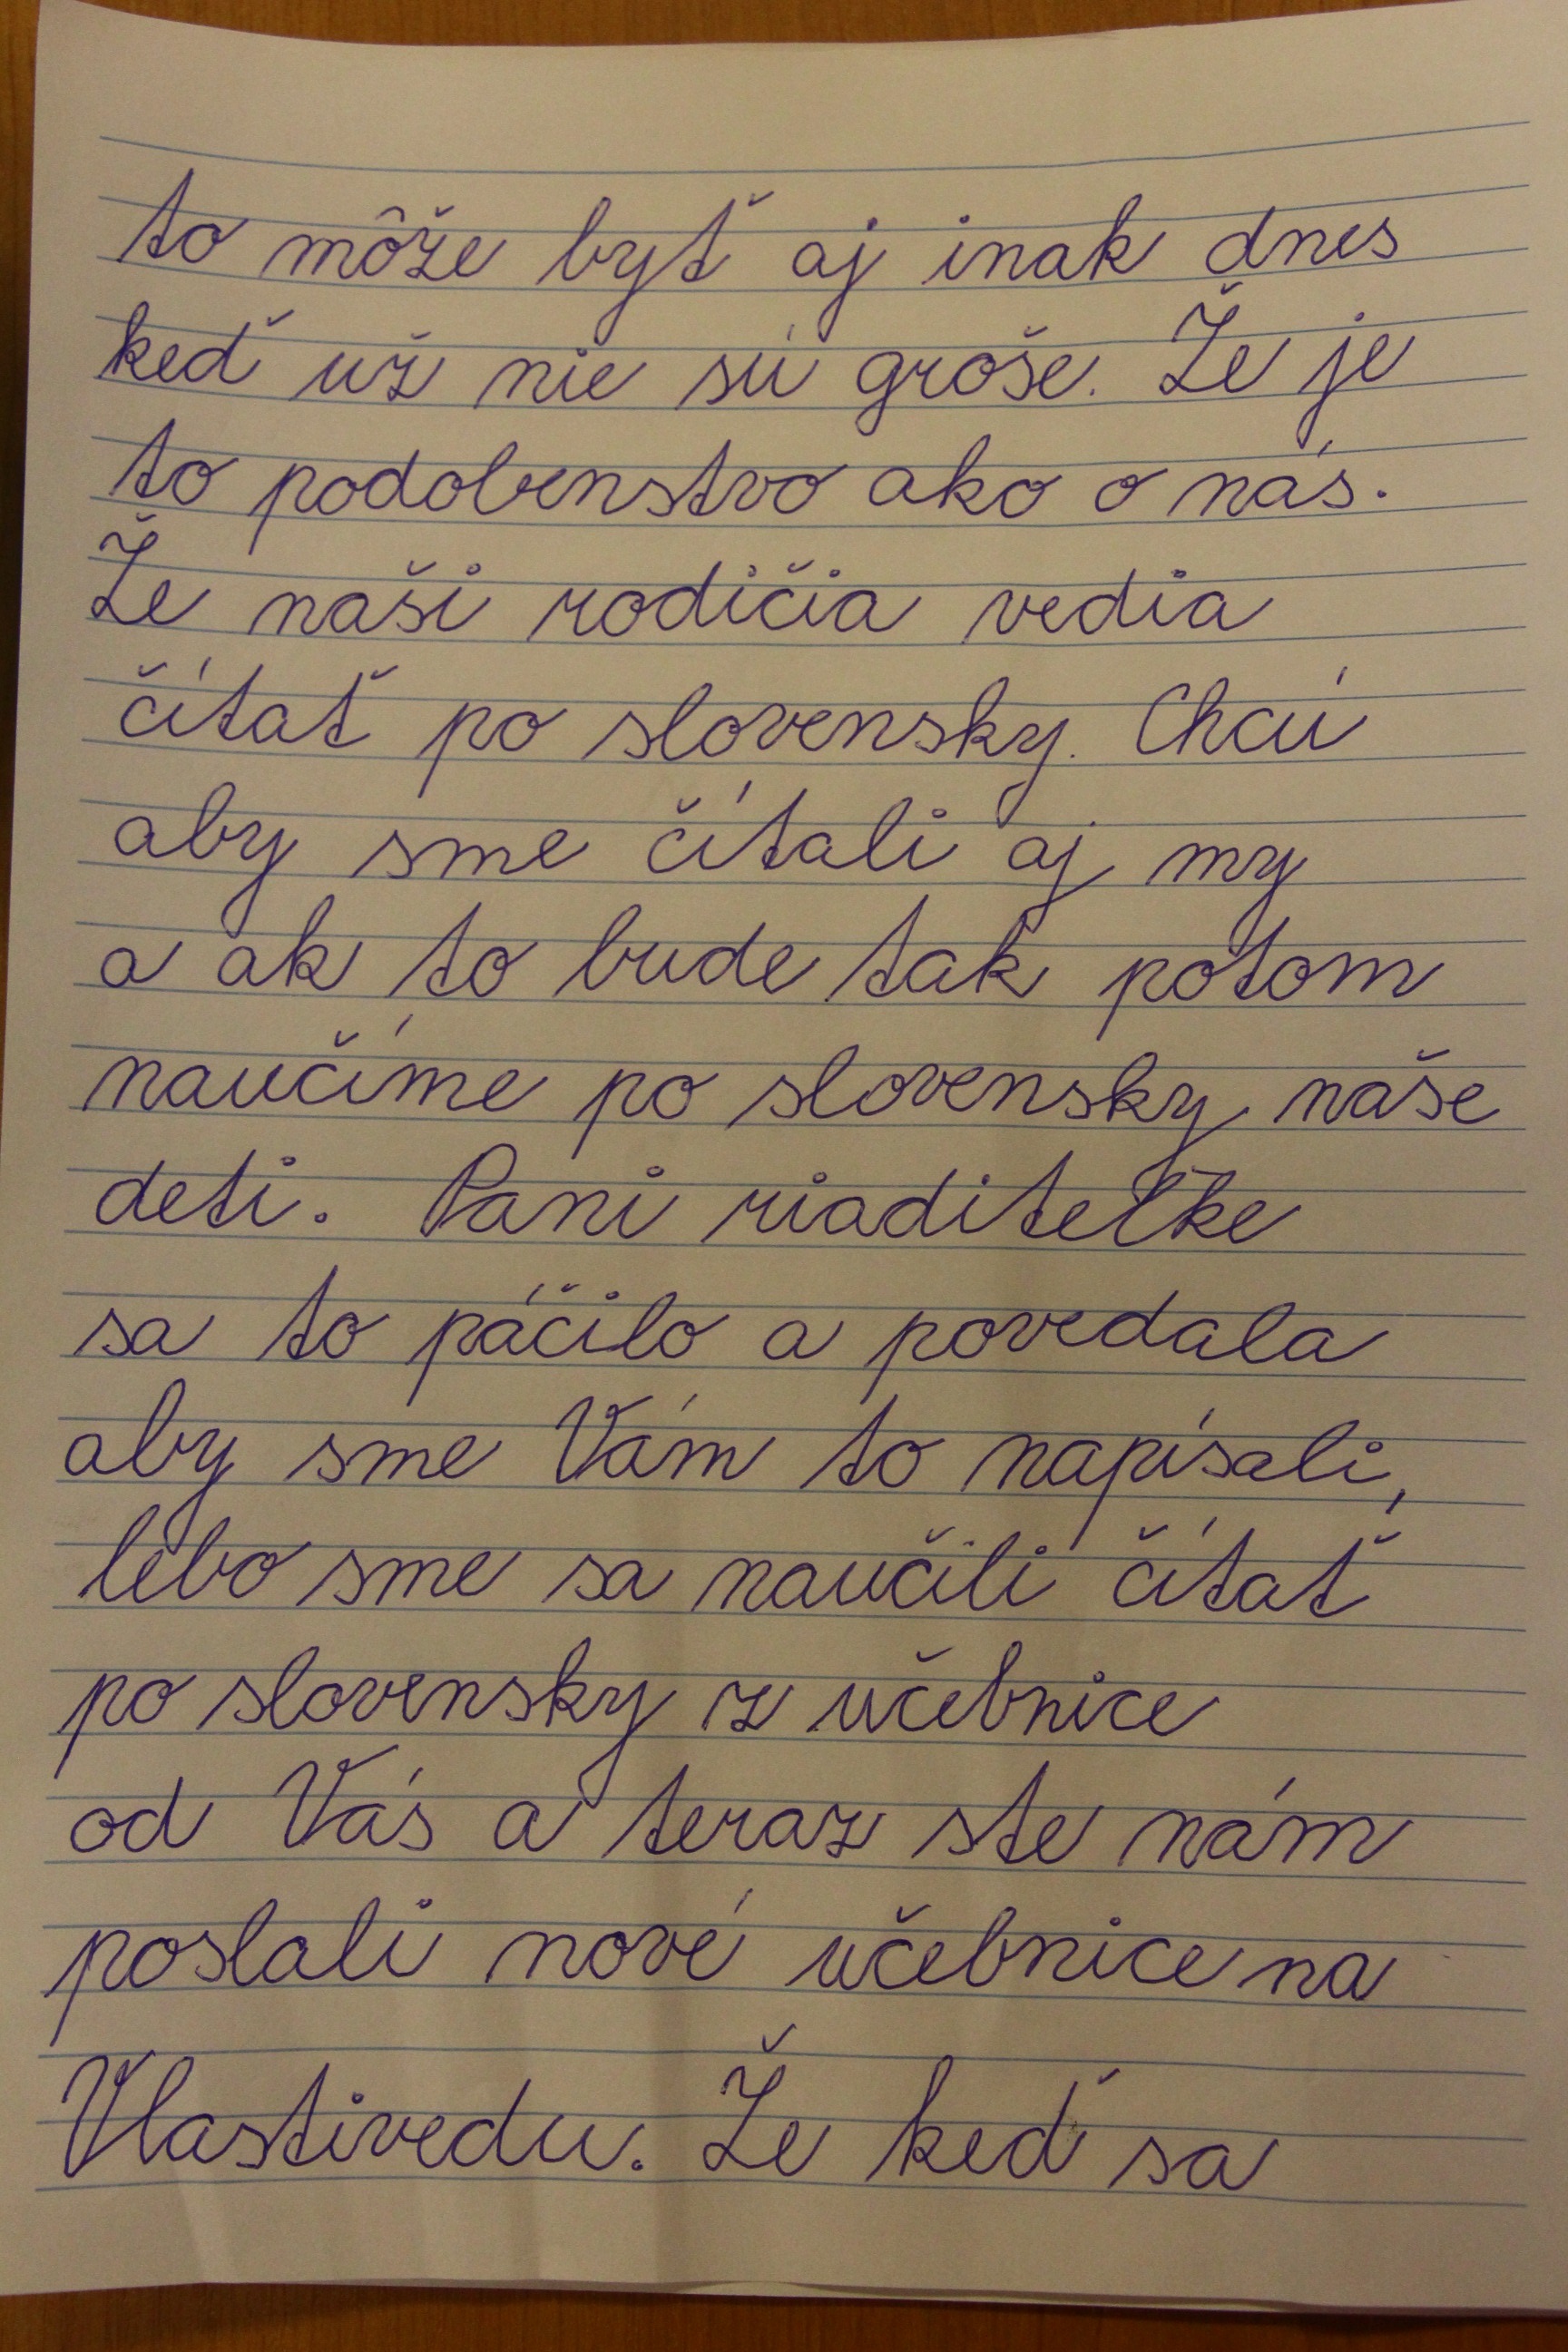 to môže byť aj inak dnes
keď už nie sú groše. Že je
to podobenstvo ako o nás.
Že naši rodičia vedia
čítať po slovensky. Chcú
aby sme čítali aj my
a ak to bude tak potom
naučíme po slovensky naše
deti. Pani riaditeľke
sa to páčilo a povedala
aby sme Vám to napísali,
lebo sme sa naučili čítať
po slovensky z učebnice
od Vás a teraz ste nám
poslali nové učebnice na
Vlastivedu. Že keď sa